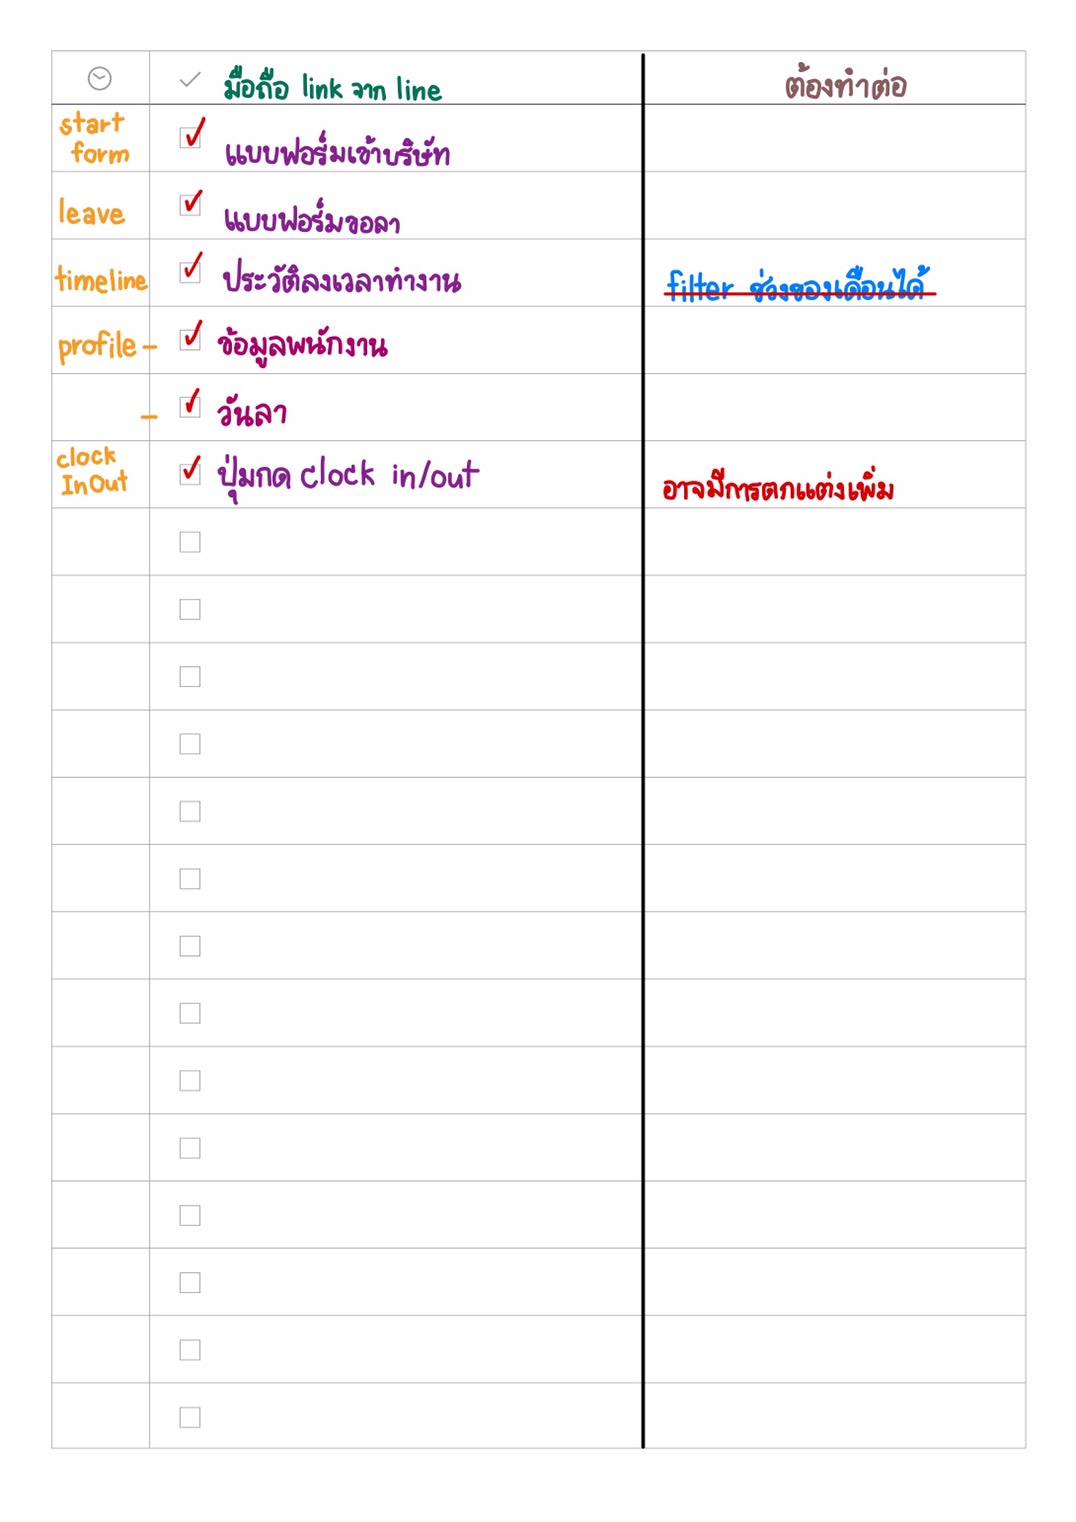 มือถือ link จาก line
ต้องทำต่อ
start
form
แบบฟอร์มเข้าบริษัท
leave
แบบฟอร์มขอลา
timeline
ประวัติลงเวลาทำงาน
filter ช่วงของเดือนได้
profile -
ข้อมูลพนักงาน
-
วันลา
clock
InOut
ปุ่มกด clock in/out
อาจมีการตกแต่งเพิ่ม